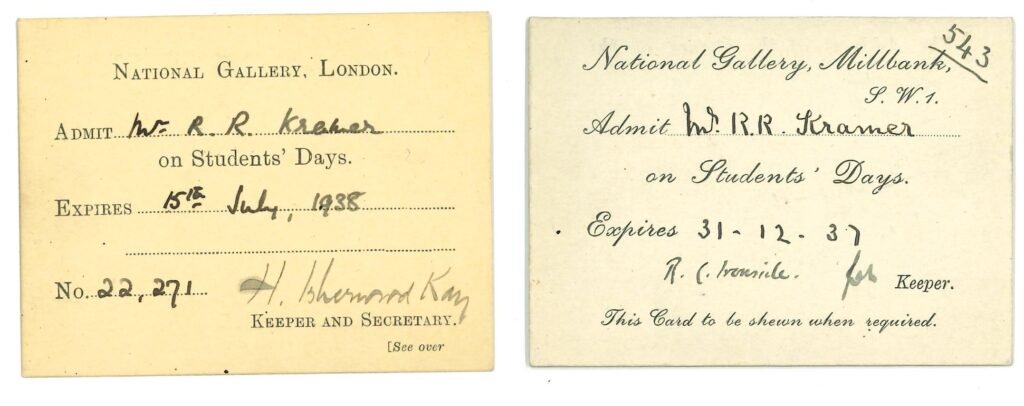 NATIONAL GALLERY, LONDON.
ADMIT Mr R. R. Kramer
on Students' Days.
EXPIRES 15th July, 1938
No. 22,271
H. Isherwood Kay
KEEPER AND SECRETARY.
[See over
543
National Gallery, Millbank,
S. W. 1.
Admit Mr. R.R. Kramer
on Students' Days.
Expires 31 - 12 - 37
R. C. Ironside. for Keeper.
This Card to be shewn when required.